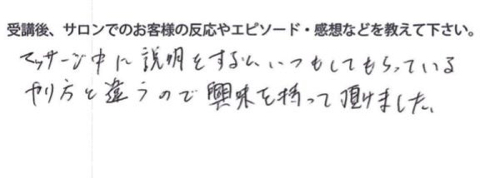 受講後、サロンでのお客様の反応やエピソード・感想などを教えて下さい。
マッサージ中に説明をすると、いつもしてもらっている
やり方と違うので興味を持って頂けました。